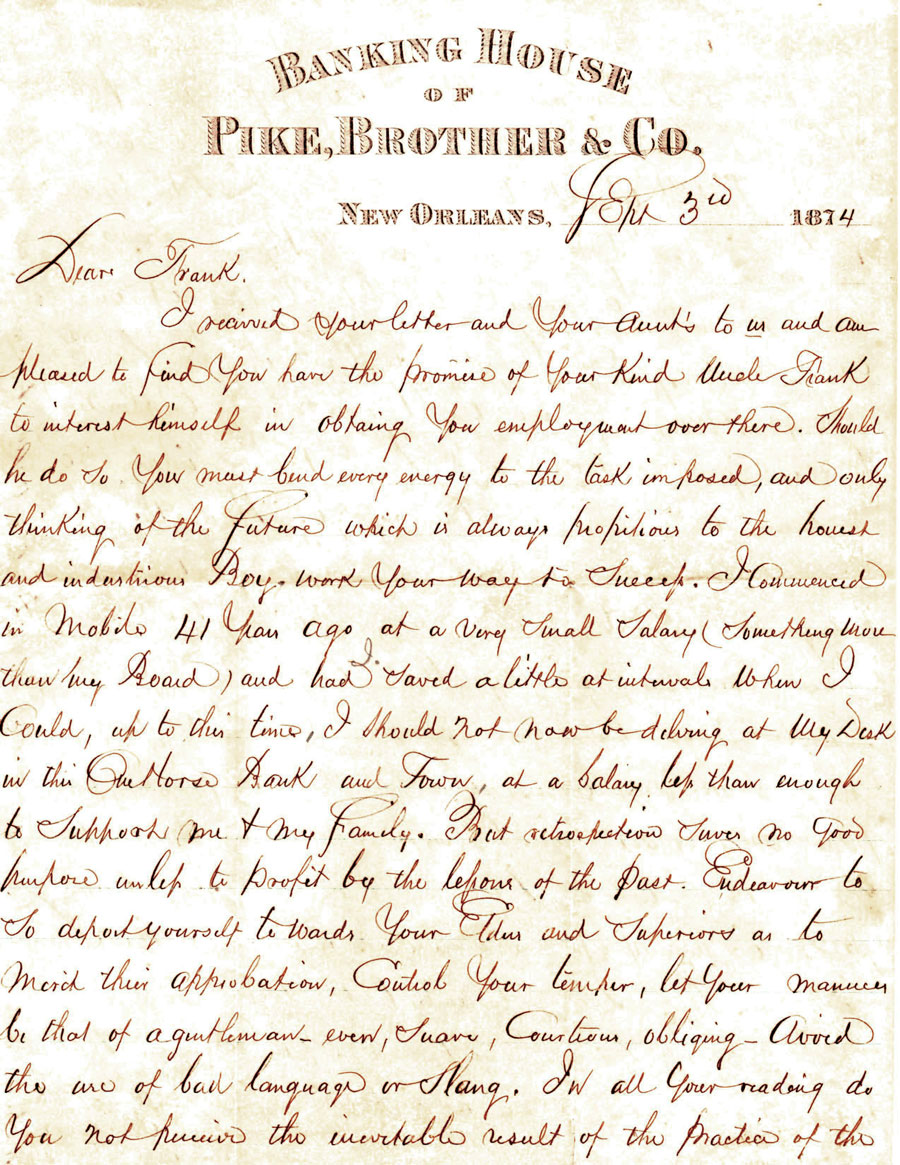 BANKING HOUSE
OF
PIKE, BROTHER & CO.
NEW ORLEANS, Sept 3rd 1874
Dear Frank.
I recieved your letter and Your Aunt's to us and am
pleased to find You have the promise of Your Kind Uncle Frank
to interest himself in obtaing You employment over there. Should
he do so You must bend every energy to the task imposed, and only
thinking of the Future which is always propitious to the honest
and industrious Boy. work Your way to Success. I Commenced
in Mobile 41 Years ago at a very Small Salary (Something More
than my Board) and had I saved a little at intervals When I
Could, up to this time, I should not now be delving at My Desk
in this One Horse Bank and Town, at a Salary less than enough
to Support me & my Family. But retrospection serves no Good
purpose unless to profit by the lessons of the Past. Endeavour to
So deport yourself towards Your Elders and Superiors as to
Merit their approbation, Control Your temper, let Your manners
be that of a gentleman - even, Suave, Courteous, obliging - Avoid
the use of bad language or Slang. In all Your reading do
You not perceive the inevitable result of the practice of the